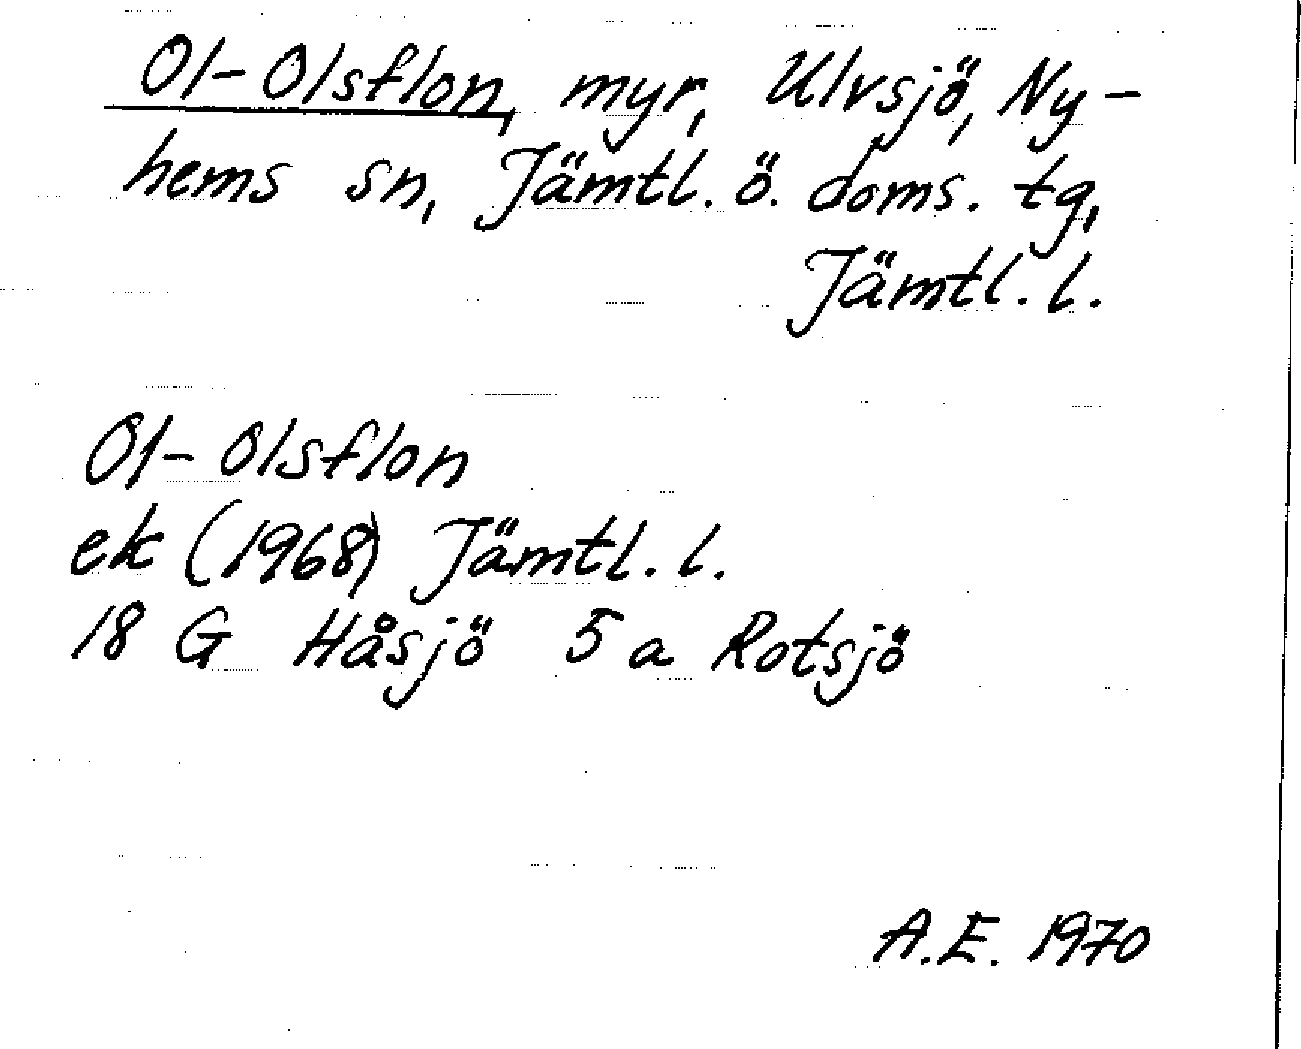 Ol-Olsflon, myr, Ulvsjö, Ny-
hems sn, Jämtl. ö. doms. tg,
Jämtl. l.
Ol-Olsflon
ek (1968) Jämtl. l.
18 G Håsjö 5a Rotsjö
A.E. 1970